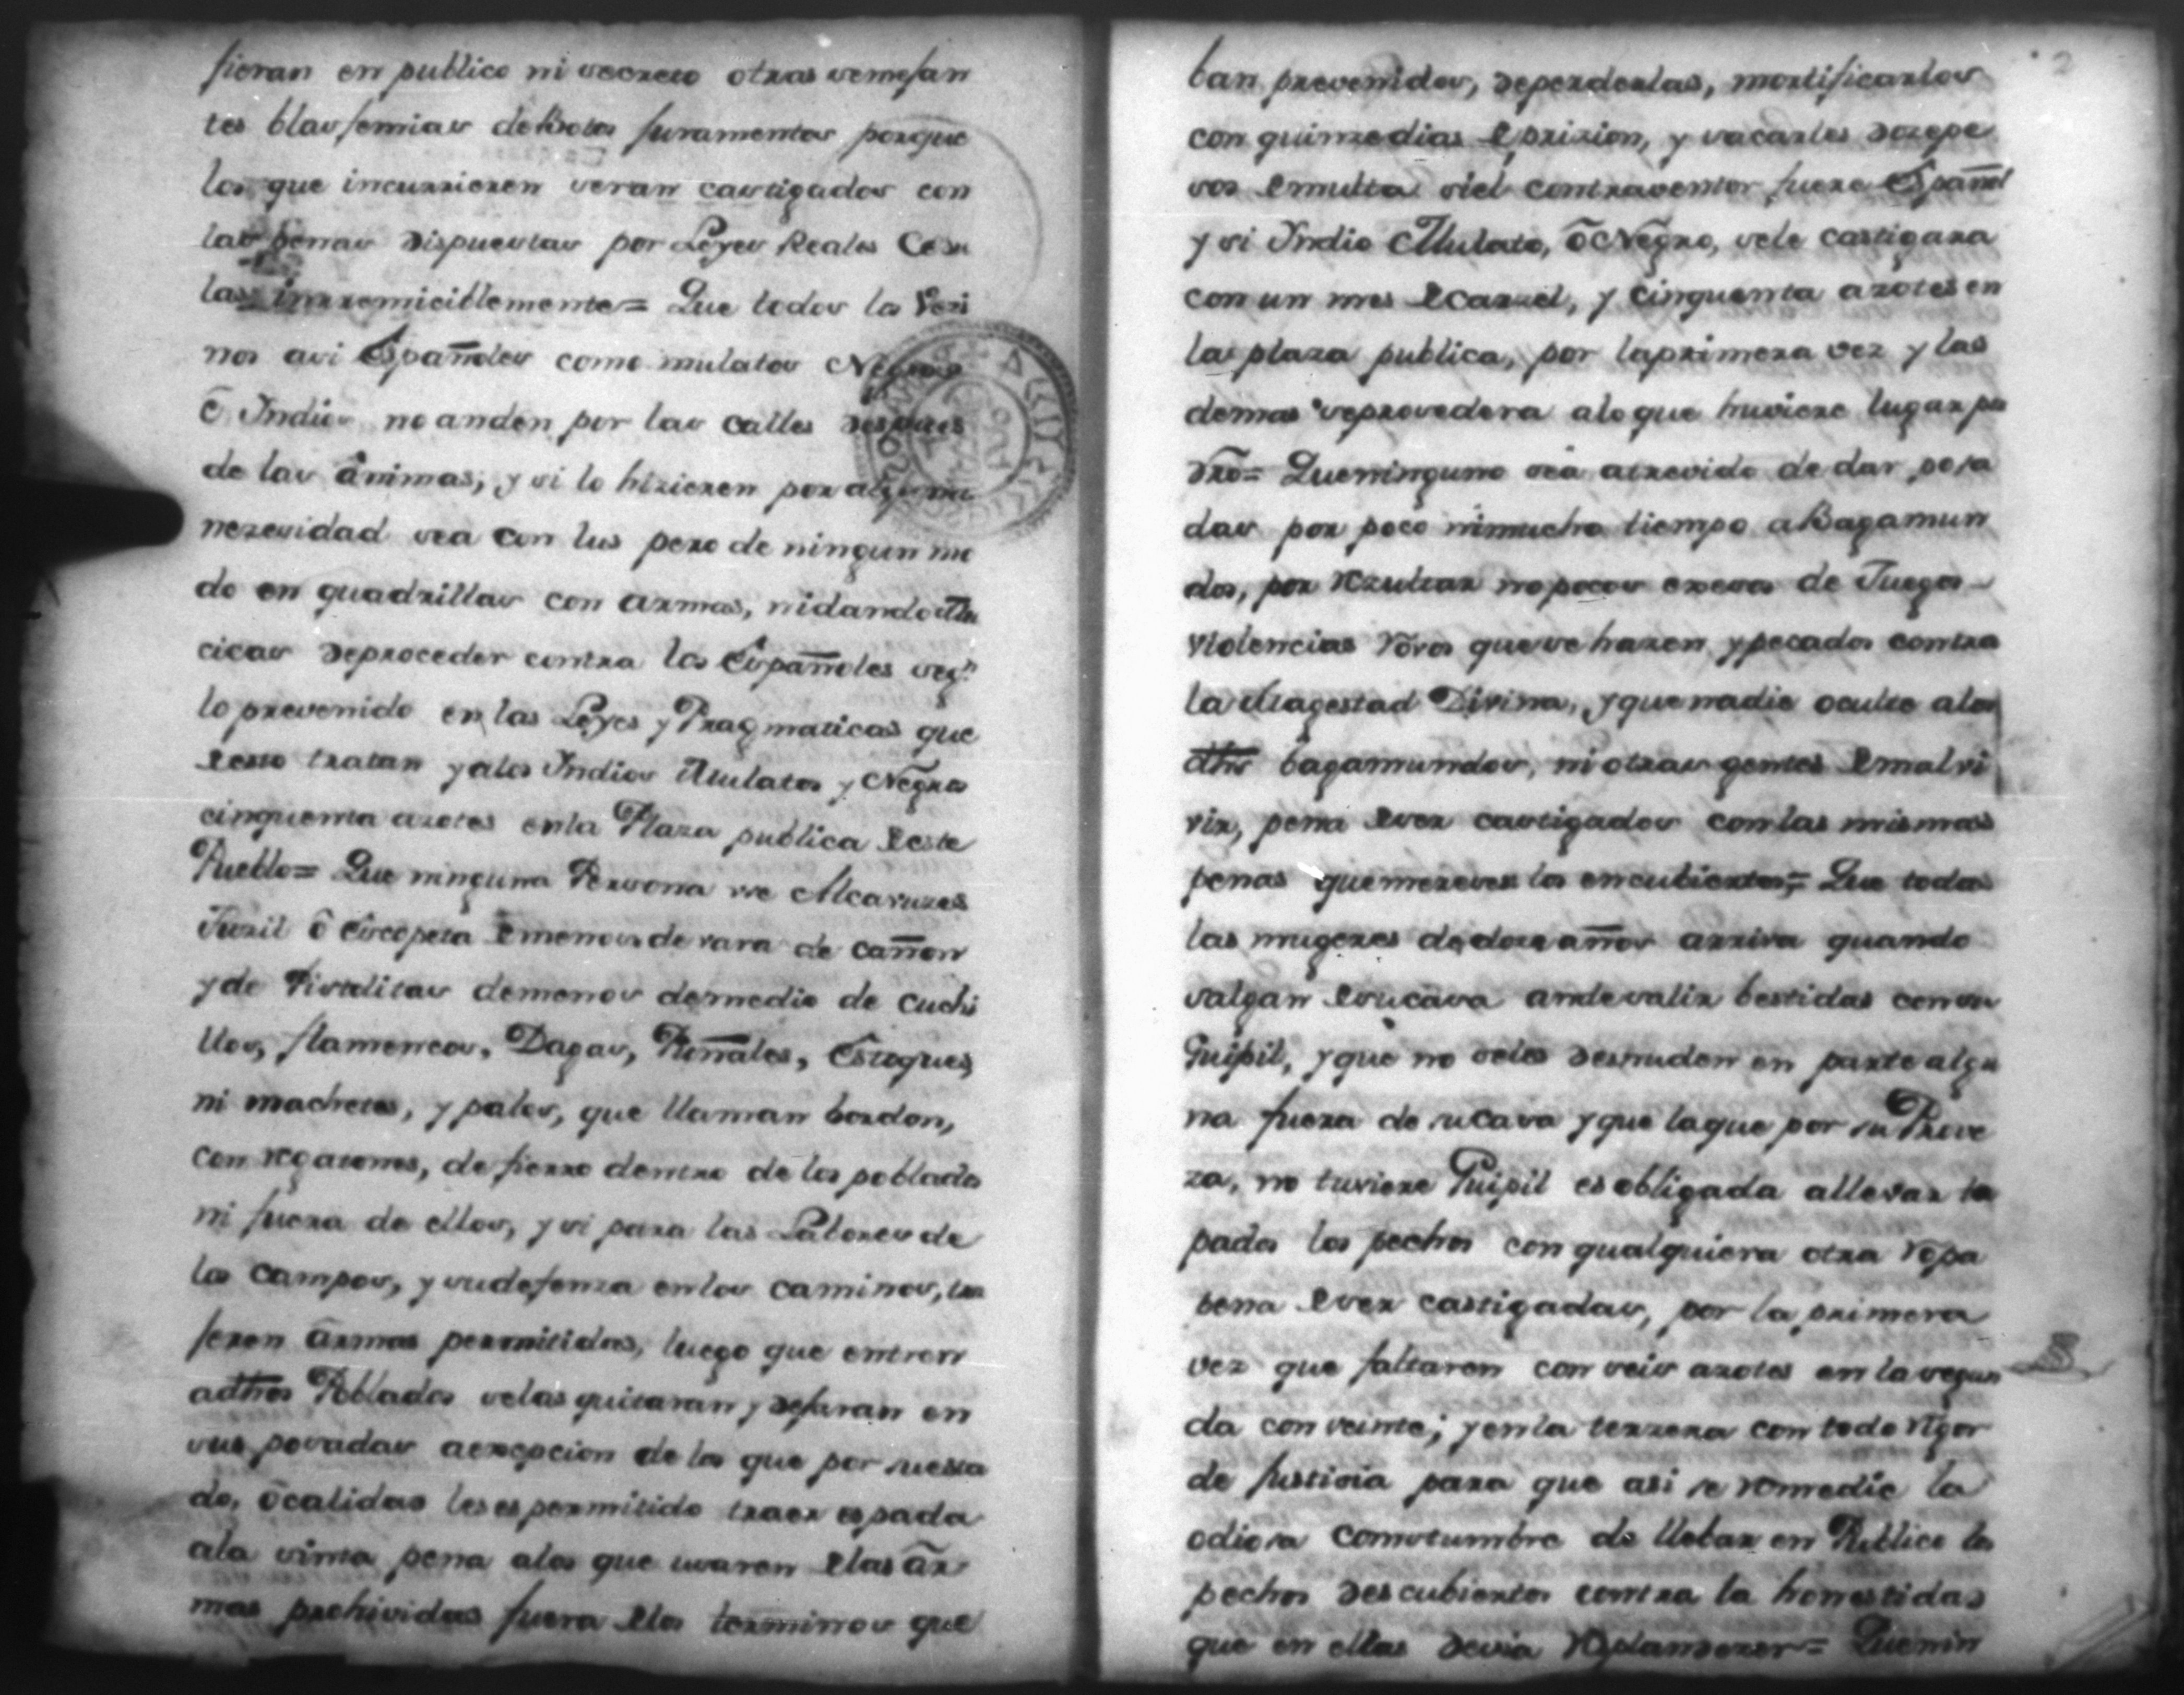 fieran en publico ni secreto otras semejan
tes blasfemias debotos juramentos porque
los que incurrieren seran castigados con
las penas dispuestas por Leyes Reales
las irremiciblemente= Que todos los Vezi
nos asi Españoles como mulatos Negros
ô Indios no anden por las calles despues
de las ânimas, y si lo hizieren por alguna
nezesidad sea con lus pero de ningun mo
do en quadrillas con armas, ni dando
cicas de proceder contra los Españoles seg.n
lo prevenido en las Leyes y Pragmaticas que
desto tratan y a los Indios Mulatos y Negros
cinquenta azotes en la Plaza publica deste
Pueblo= Que ninguna Persona use Alcavuzes
Fuzil ô Escopeta de menos de vara de cañon
y de Pistolitas de menos de medio de cuchi
llos, flamencos, Dagas, Puñales, Estoques,
ni machetes, y palos, que llaman bordon,
con regatones, de fierro dentro de los poblados
ni fuera de ellos, y si para las Labores de
los campos, y su defenza en los caminos, tra
jeren ârmas permitidas, luego que entren
a dhos Poblados se las quitaran y dejaran en
sus posadas a excepcion de los que por su esta
do, ô calidad les es permitido traer espada
a la sinta pena a los que usaren de las âr
mas prohividas fuera de los terminos que
ban prevenidos, de perderlas, mortificarlos
con quinze dias de prizion, y sacarles doze pe
sos de multa si el contraventor fuere Español
y si Indio Mulato, ô Negro, se le castigara
con un mes de carzel, y cinquenta azotes en
la plaza publica, por la primera vez y las
demas se provedera a lo que huviere lugar por
dro= Que ninguno sea atrevido de dar posa
das por poco ni mucho tiempo a Bagamun
dos, por rezultar no pocos exesos de Juegos
violencias rôvos que se hazen y pecados contra
la Magestad Divina, y que nadie oculte a los
dhos bagamundos, ni otras gentes de mal vi
vir, pena de ser castigados con las mismas
penas que merecen los encubiertos= Que todas
las mugeres de doze años arriva quando
salgan de su casa an de salir bestidas con su
Guipil, y que no se les desnuden en parte algu
na fuera de su casa y que la que por su Prove
za, no tuviere Guipil es obligada a llevar ta
pados los pechos con qualquiera otra rôpa
pena de ser castigadas, por la primera
vez que faltaren con seis azotes en la segun
da con veinte; y en la terzera con todo rigor
de justicia para que asi se remedie la
odiosa comstumbre de llebar en Publico los
pechos descubiertos contra la honestidad
que en ellas devia resplandezer= Que nin